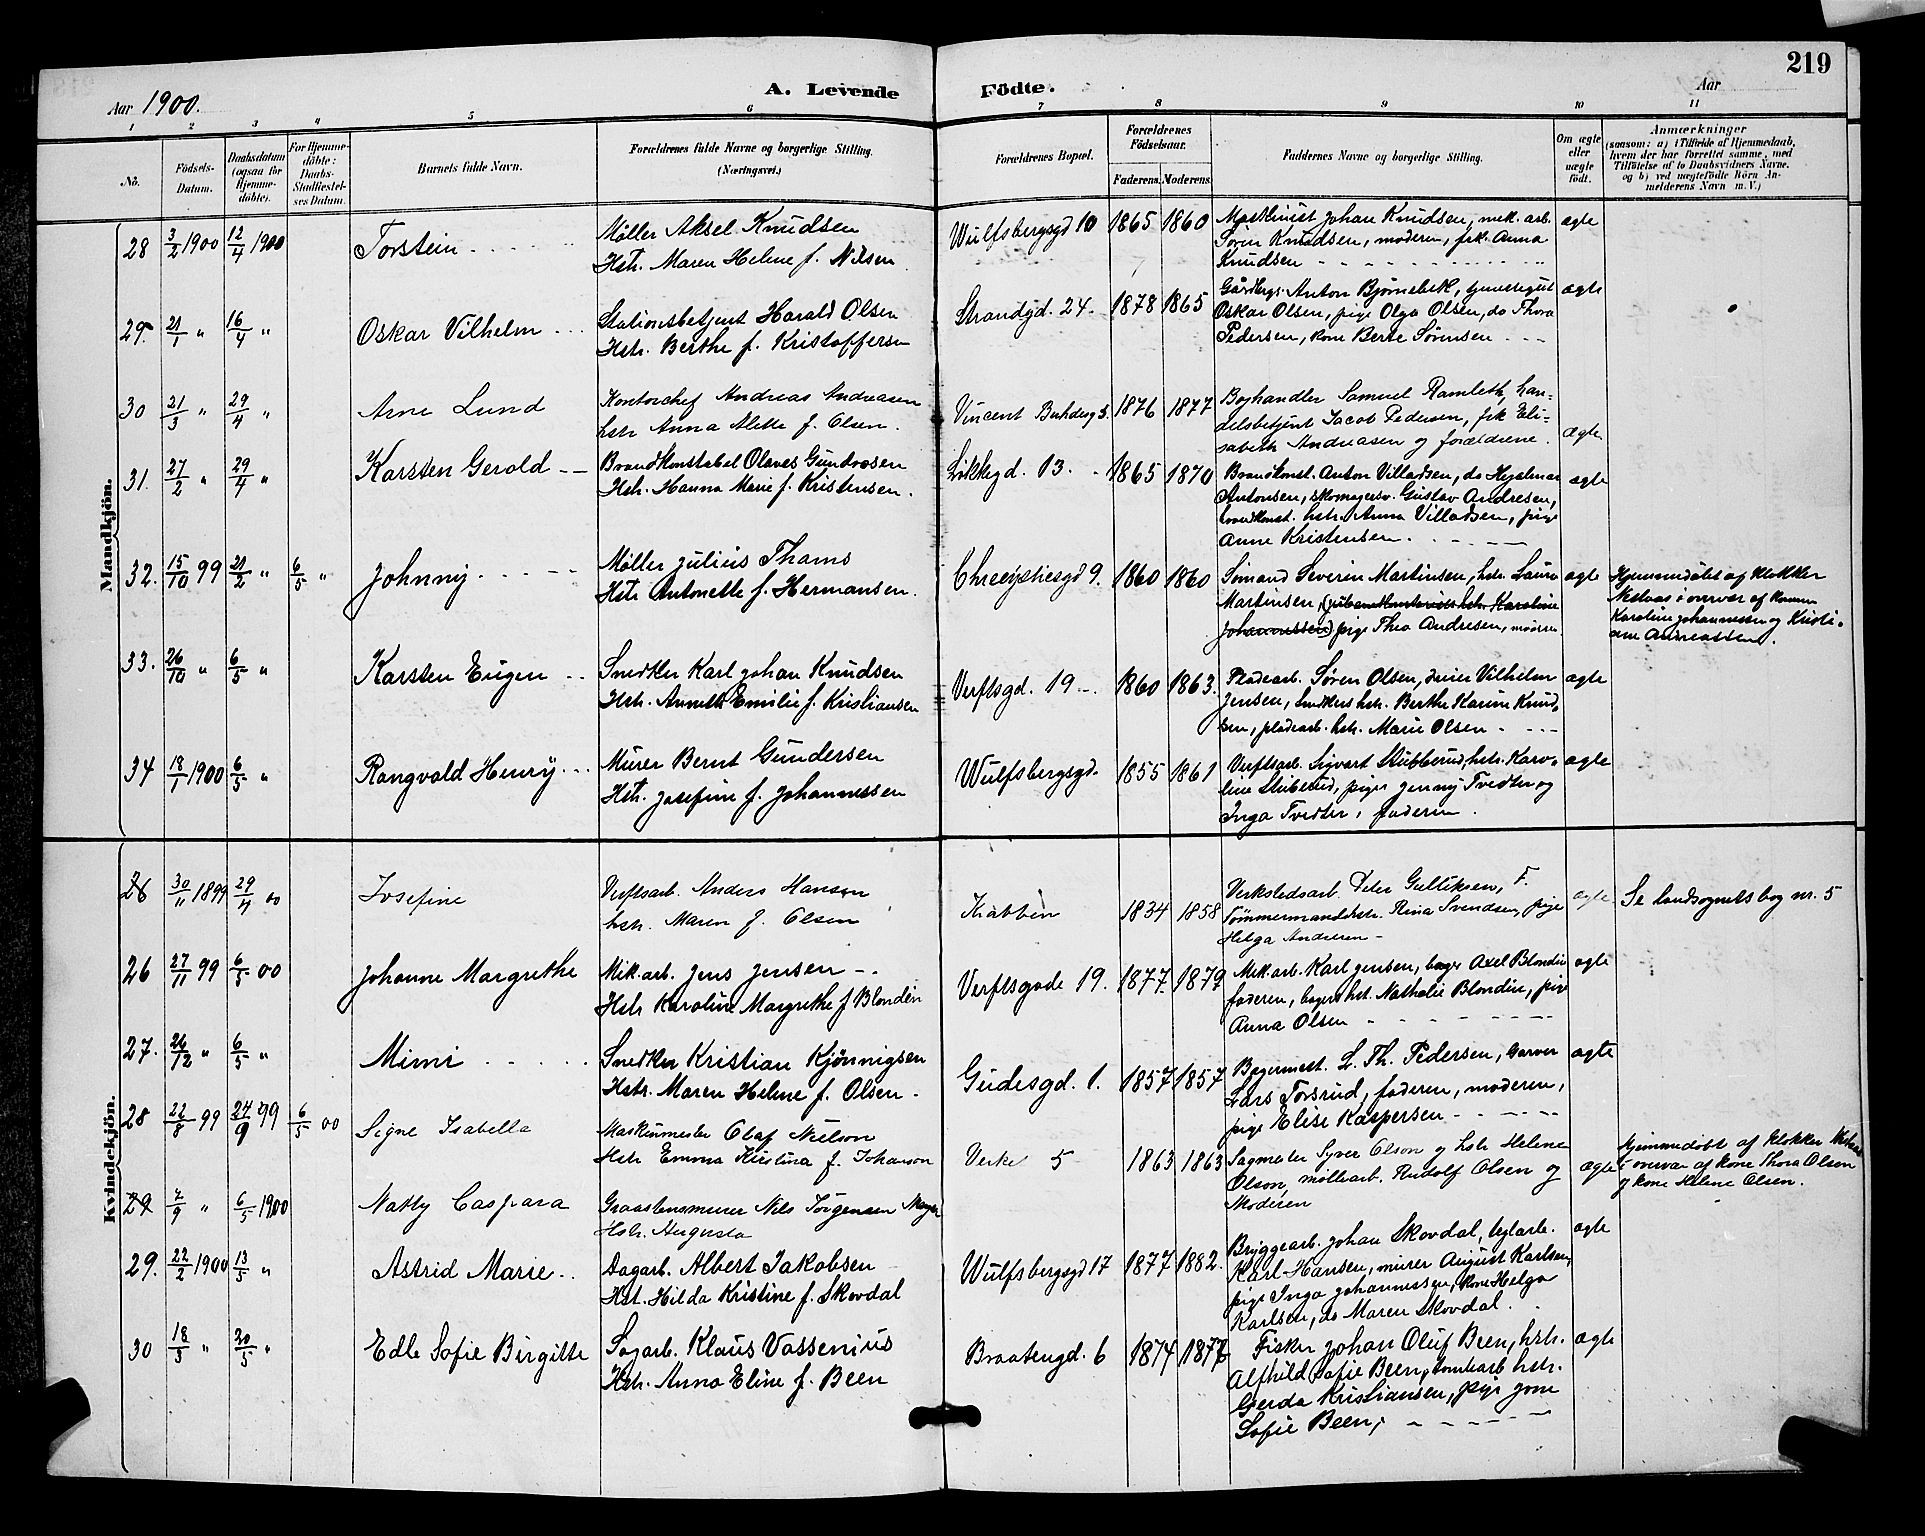 219
Aar 1900.
A. Levende Födte.
Aar
1 2 3 4 5 6 7 8 9 10 11
No.
Födsels-Datum.
Daabsdatum (ogsaa for Hjemme-döbte).
For Hjemme-döbte: Daabs-Stadfæstel-ses Datum.
Barnets fulde Navn.
Forældrenes fulde Navne og borgerlige Stilling. (Næringsvei.)
Forældrenes Bopæl.
Forældrenes Födselsaar.
Faderens. Moderens.
Faddernes Navne og borgerlige Stilling.
Om ægte eller uægte födt.
Anmærkninger
(saasom: a) i Tilfælde af Hjemmedaab, hvem der har forrettet samme, med Tilföielse af to Daabsvidners Navne. og b) ved uægtefödte Börn An-melderens Navn m. V.)
Mandkjön.
28 3/2 1900 12/4 1900 Torstein
Møller Aksel Knudsen
Hstr. Maren Helene f. Nilsen
Wulfsbergsgd 10 1865 1860
Maskinist Johan Knudsen, mek. arb.
Søren Knudsen, moderen, frk. Anna
Knudsen
ægte
29. 21/1 " 16/4 " Oskar Vilhelm
Stationsbetjent Harald Olsen
Hstr. Berthe f. Kristoffersen
Strandgd. 24. 1878 1865
Gårdbrgs. Anton Bjørnebek, tjenestegut
Oskar Olsen, pige Olga Olsen, do Thora
Pedersen, kone Berte Sørensen
ægte
30 21/3 " 29/4 " Arne Lund
Kontorchef Andreas Andreasen
hstr Anna Alette f. Olsen.
Vincent Buhdesg 5. 1876 1877
Boghandler Samuel Ramleth, han-
delsbetjent Jacob Pedersen, frk Eli-
sabeth Andreasen og forældrene.
ægte
31. 27/2 " 29/4 " Karsten Gerold
Brandkonstabel Olaves Gundersen
Hstr. Hanna Marie f. Kristensen.
Løkkegd. 13. 1865 1870
Brandkonst. Anton Villadsen, do Hjalmar
Antonsen, skomagersv. Gustav Andresen,
brandkonst. hstr. Anna Villadsen, pige
Anne Kristensen.
ægte
32. 15/10 99 21/2 " 6/5 " Johnny
Møller Julius Thams
Hstr Antonette f. Hermansen.
9. 1860 1860
Sømand Severin Martinsen, hstr. Laura
Martinsen, Karoline
Johannessen) pige Thea Andresen, moderen
ægte
Hjemmedøbt af klokker
Nesloas i overvær af konen
Karoline Johannessen og Kristi-
ane Andreassen.
33. 26/10 " 6/5 " Karsten Eugen
Snedker Karl Johan Knudsen
Hstr. Annette Emilie f. Kristiansen
Verftsgd. 19 1860 1863.
Pladearb. Søren Olsen, Vilhelm
Jensen, snedkers hstr. Berthe Karine Knud-
sen, pladearb. hstr. Marie Olsen
ægte
34 18/1 1900 6/5 " Rangvald Henry
Murer Bernt Gundersen
Hstr. Josefine f. Johannessen
Wulfsbergsgd. 1855 1861
Verftsarb. Sigvart Stubberud, hstr. Karo-
line Stubberud, piger Jenny Tvedter og
Inga Tvedter, faderen.
ægte
Kvindekjön.
26 30/11 1899 29/4 00 Josefine
Verftsarb. Anders Hansen
hstr. Maren f. Olsen
Krabben 1834 1858
Verkstedsarb. Peter Gulliksen, F.
Tømmermandshstr. Rina Svendsen, pige
Helga Andersen
ægte
Se landsognets bog nr. 5
26 27/11 99 6/5 00 Johanne Margrethe
Mek. arb. Jens Jensen
Hstr Karoline Margrethe f Blondin
Verftsgade 19. 1877. 1879
Mek. arb. Karl Jensen, bager Axel Blondin
faderen, bagers hst. Nathalie Blondin, pige
Anna Olsen
ægte
27. 26/12 " 6/5 " Mimi
Snedker Kristian Kjønnigsen
Hstr. Maren Helene f. Olsen.
Gudesgd. 1. 1857 1857
Bagermest. L. Th. Pedersen, Garver
Lars Torsrud, faderen, moderen,
pige Elise Kaspersen
ægte
28 22/8 99 24/9 99 6/5 00 Signe Isabella
Maskinmester Olaf Nielson
Hstr Emma Kristina f. Johanson
Verket 5 1863 1863
Sagmester Syver Olson og hstr Helene
Olson, møllearb. Rudolf Olsen og
Moderen
ægte
Hjemmedøbt af klokker
i overvær af kone Thora Olsen
og kone Helene Olsen.
29 7/9 " 6/5 1900 Natty Caspara
Graastensmurer Nils Jørgensen
Hstr. Augusta
29. 22/2 1900 13/5 " Astrid Marie
Dagarb. Albert Jakobsen
Hst. Hilda Kristine f. Skovdal
Wulfsbergsgd 17 1877 1882.
Bryggearb. Johan Skovdal, teglarb.
Karl Hansen, murer August Karlsen,
pige Inga Johannessen, kone Helga
Karlsen, do Maren Skovdal.
ægte
30 18/3 " 20/5 " Edle Sofie Birgitte
Sagarb. Klaus Vassenius
Hstr. Anna Eline f. Been
Braatengd. 6 1874 1877
Fisker Johan Oluf Been, hstr.
Alfhild Sofie Been, tomtearb. hstr.
Gerda Kristiansen, pige
Sofie Been,
ægte